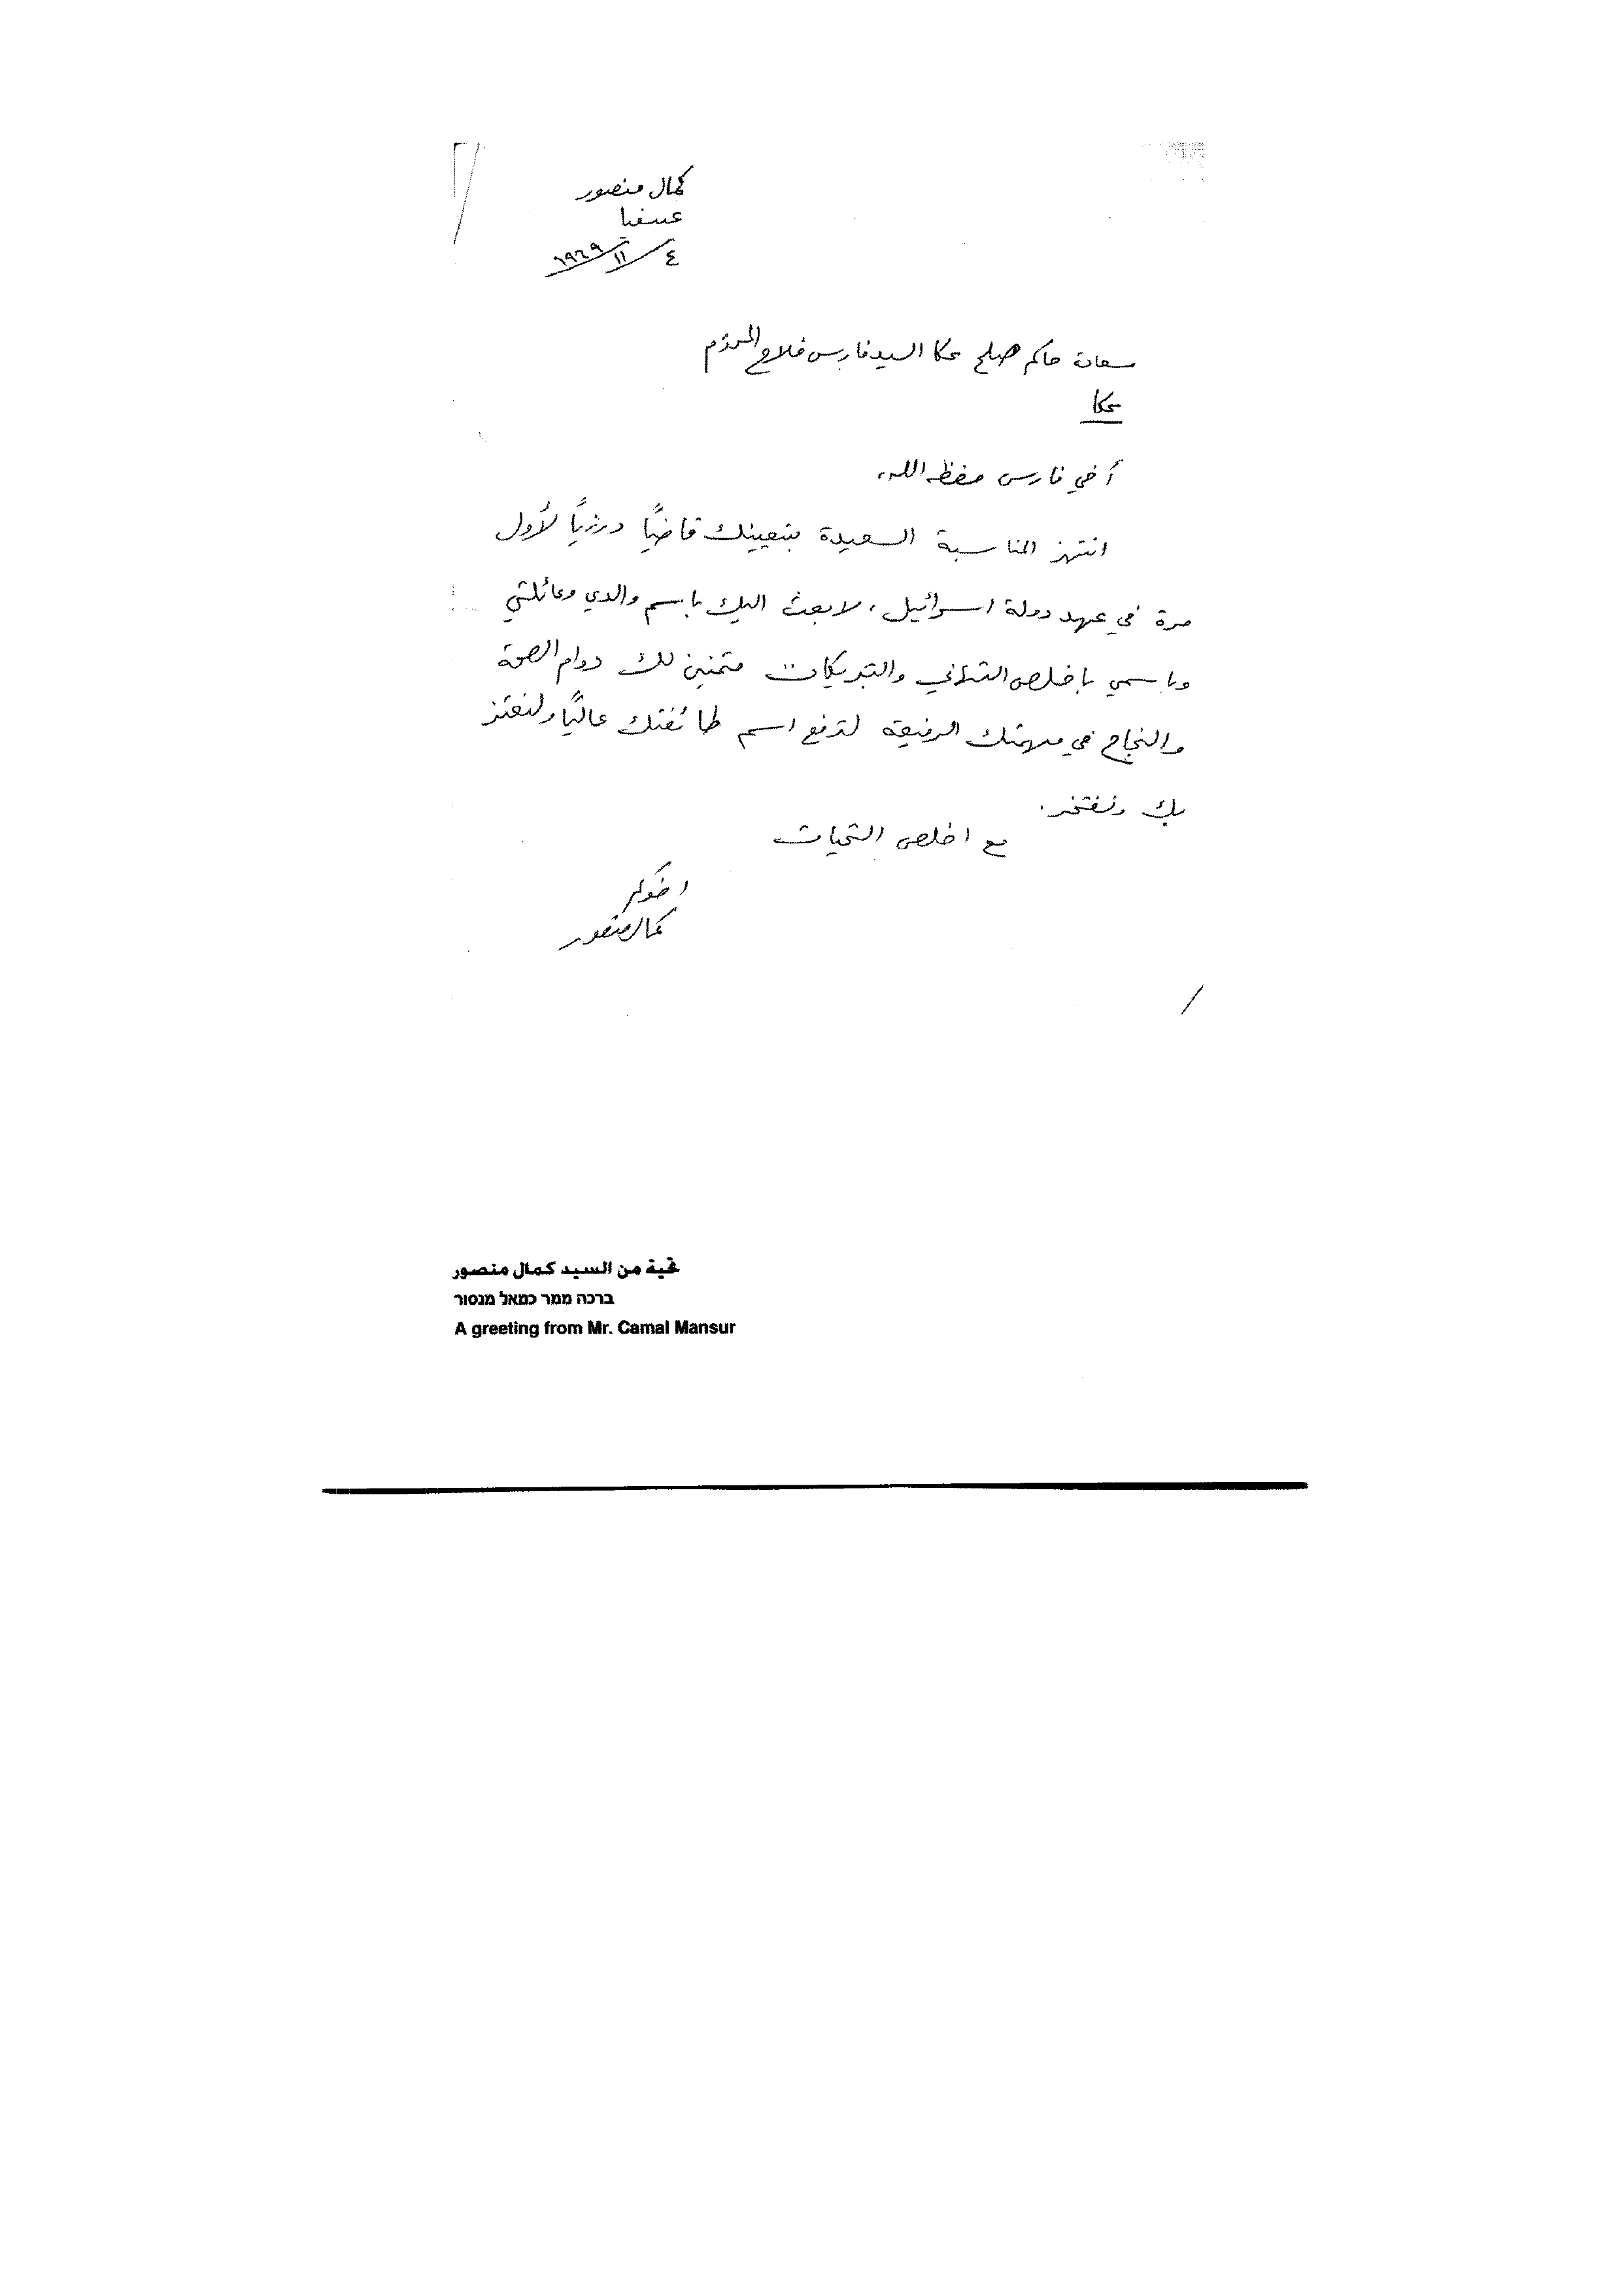 كمال منصور
عسفيا
٤/١١/١٩٦٩
سعادة حاكم صلح عكا السيد فارس فلاح المحترم
عكا
أخي فارس حفظه الله،
انتهز المناسبة السعيدة بتعيينك قاضيًا درزيًا لأول
مرة في عهد دولة اسرائيل، لابعث اليك باسم والدي وعائلتي
وباسمي باخلص التهاني والتبريكات متمنين لك دوام الصحة
والنجاح في مهمتك الرفيعة لترفع اسم طائفتك عاليًا ولنعتز
بك ونفتخر.
مع اخلص التحيات
اخوكم
كمال منصور
تحية من السيد كمال منصور
ברכה ממר כמאל מנסור
A greeting from Mr. Camal Mansur